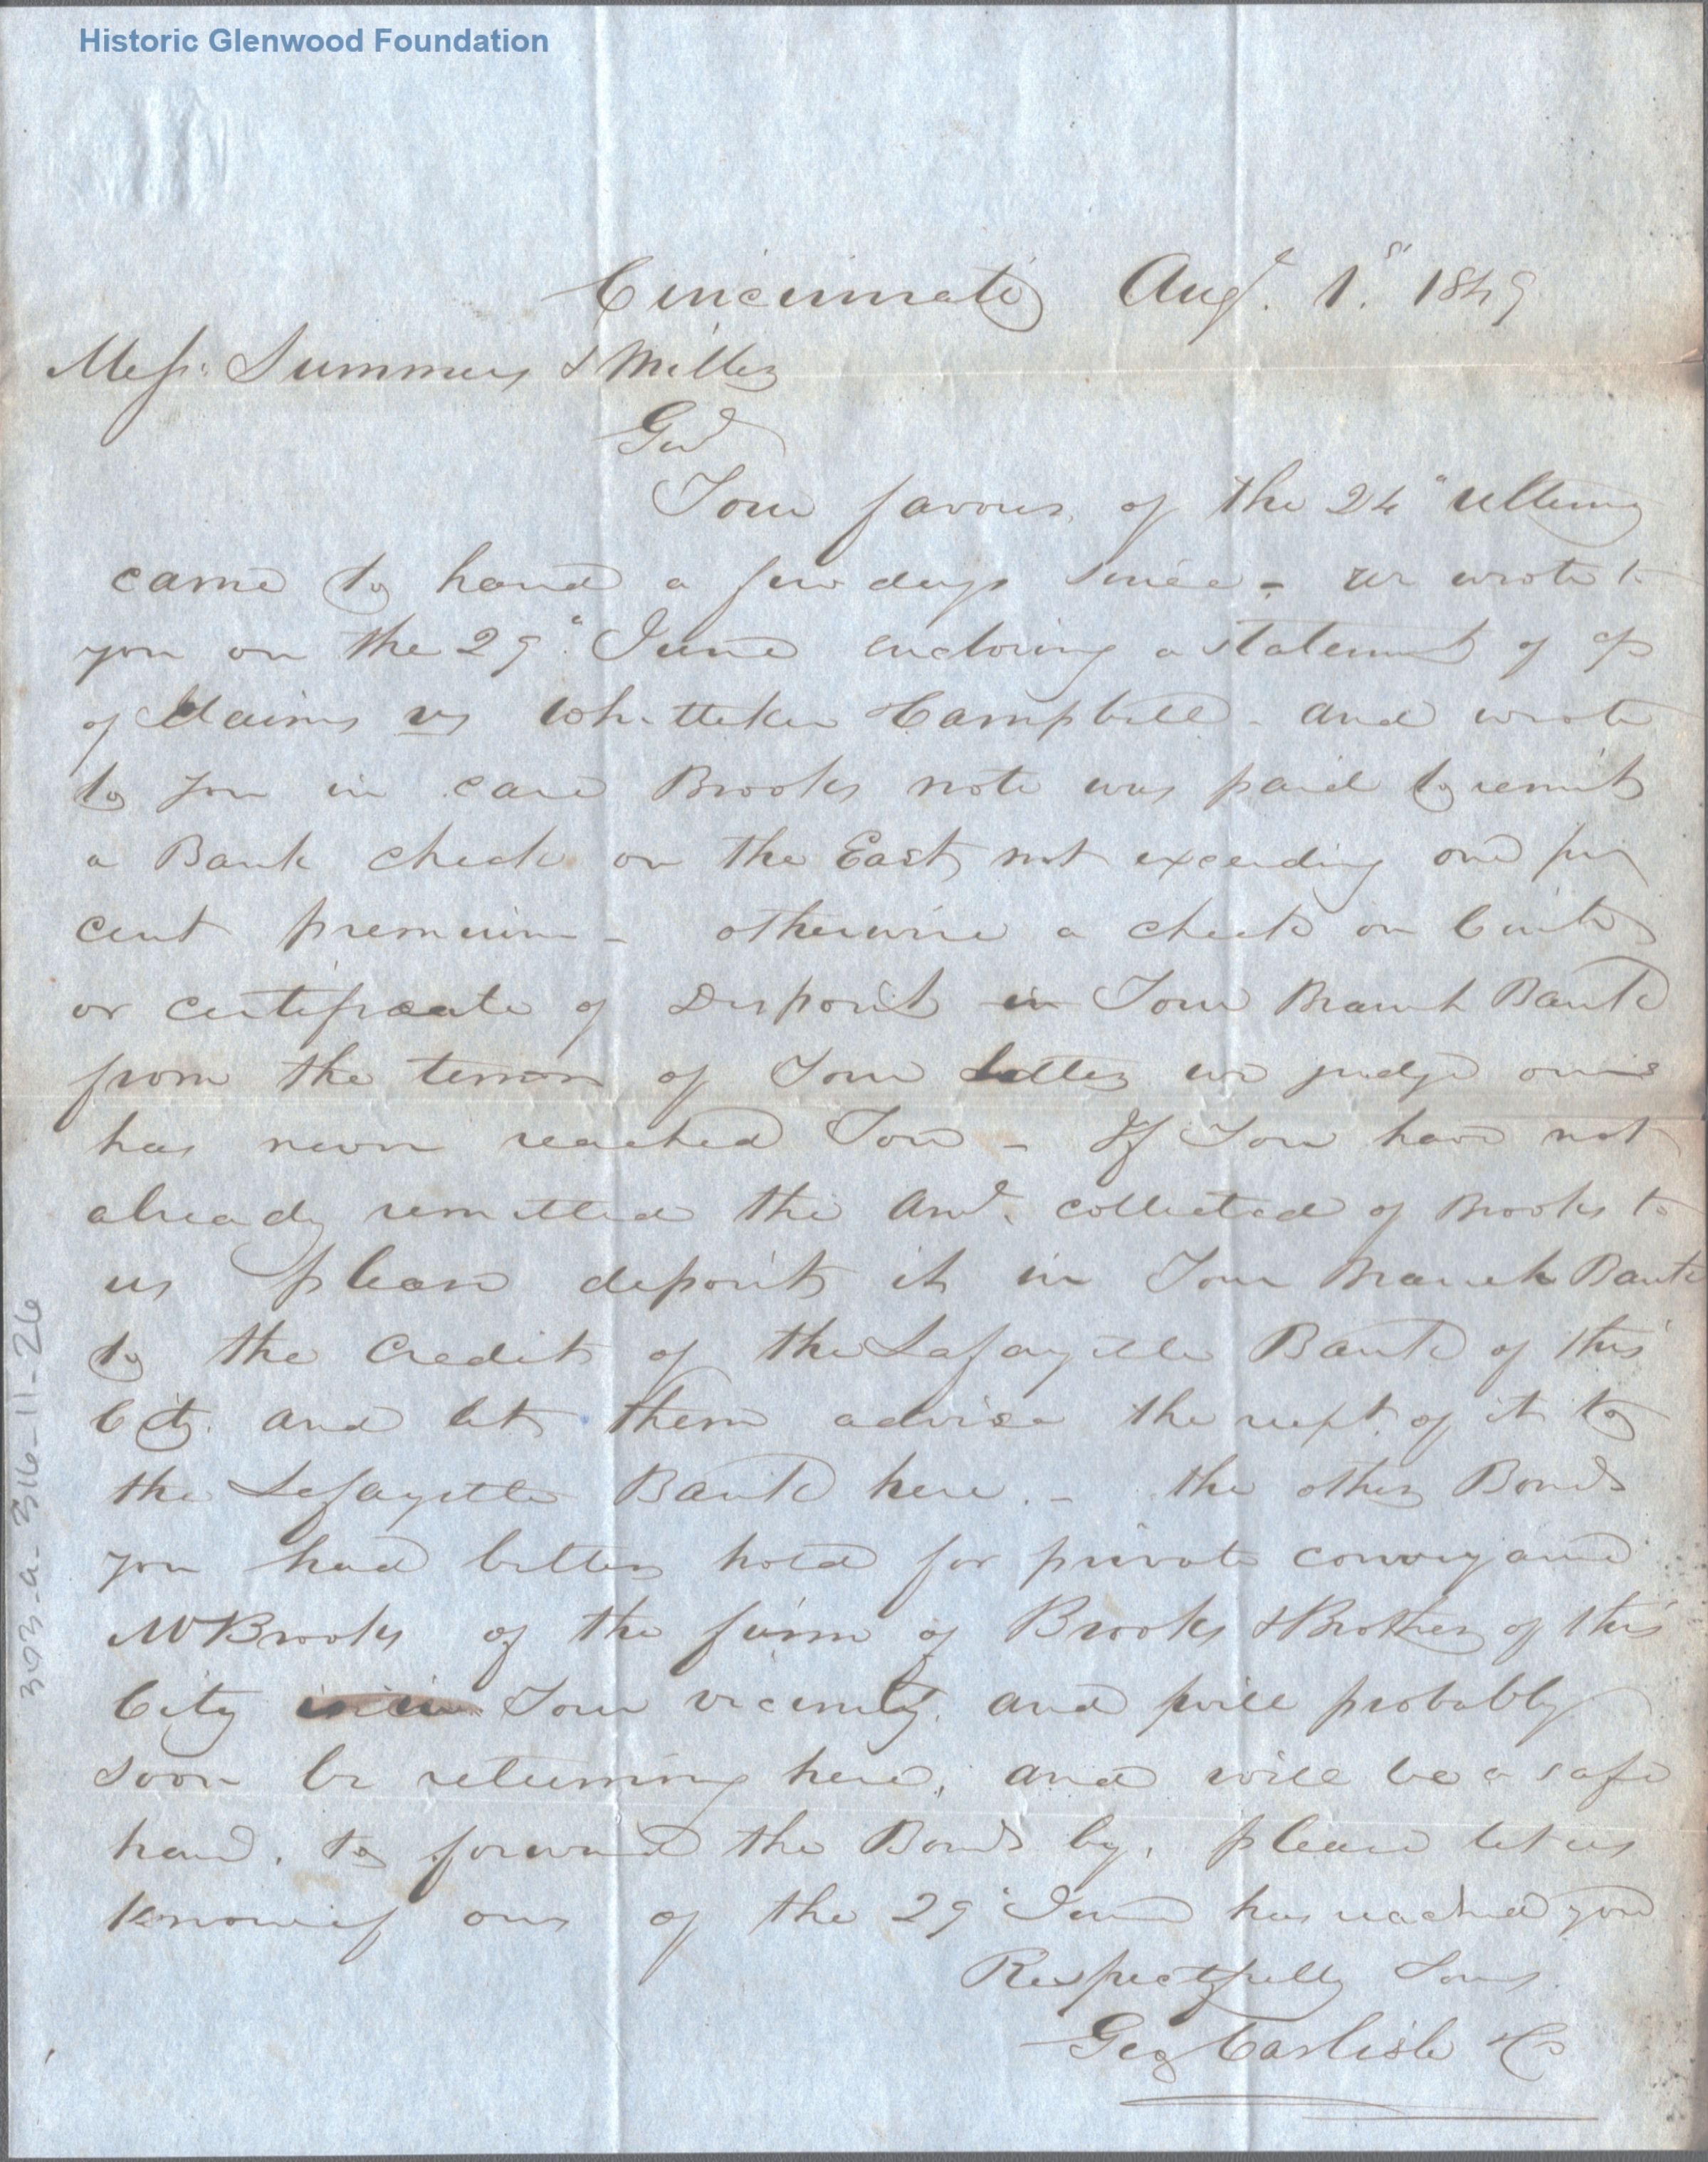 Historic Glenwood Foundation
Cincinnati Augt. 1st 1849
Messrs Summers & Miller
Gent
Your favour of the 24" ultimo
came to hand a few days since - we wrote to
you on the 29" June enclosing a statement of
of Claims vs Whitteker Campbell - and wrote
to you in case Brooks note was paid to remit
a Bank check on the East, not exceeding one per
cent premium - otherwise a check on Cinti
or certificate of Deposit in Your Branch Bank
from the tenor of Your letter we judge ours
has never reached You - If You have not
already remitted the Amt. collected of Brooks to
us please deposit it in Your Branch Bank
to the Credit of the Lafayette Bank of this
City. and let them advise the recpt. of it to
the Lafayette Bank here. - the other Bonds
you had better hold for private conveyance
Mr Brooks of the firm of Brooks & Brother of this
City is in Your vicinity, and will probably
soon be returning here, and will be a safe
hand, to forward the Bonds by, please let us
know if ours of the 29" June has reached you
Respectfully Yours.
Geo Carlisle & Co
393-a-316-11-26